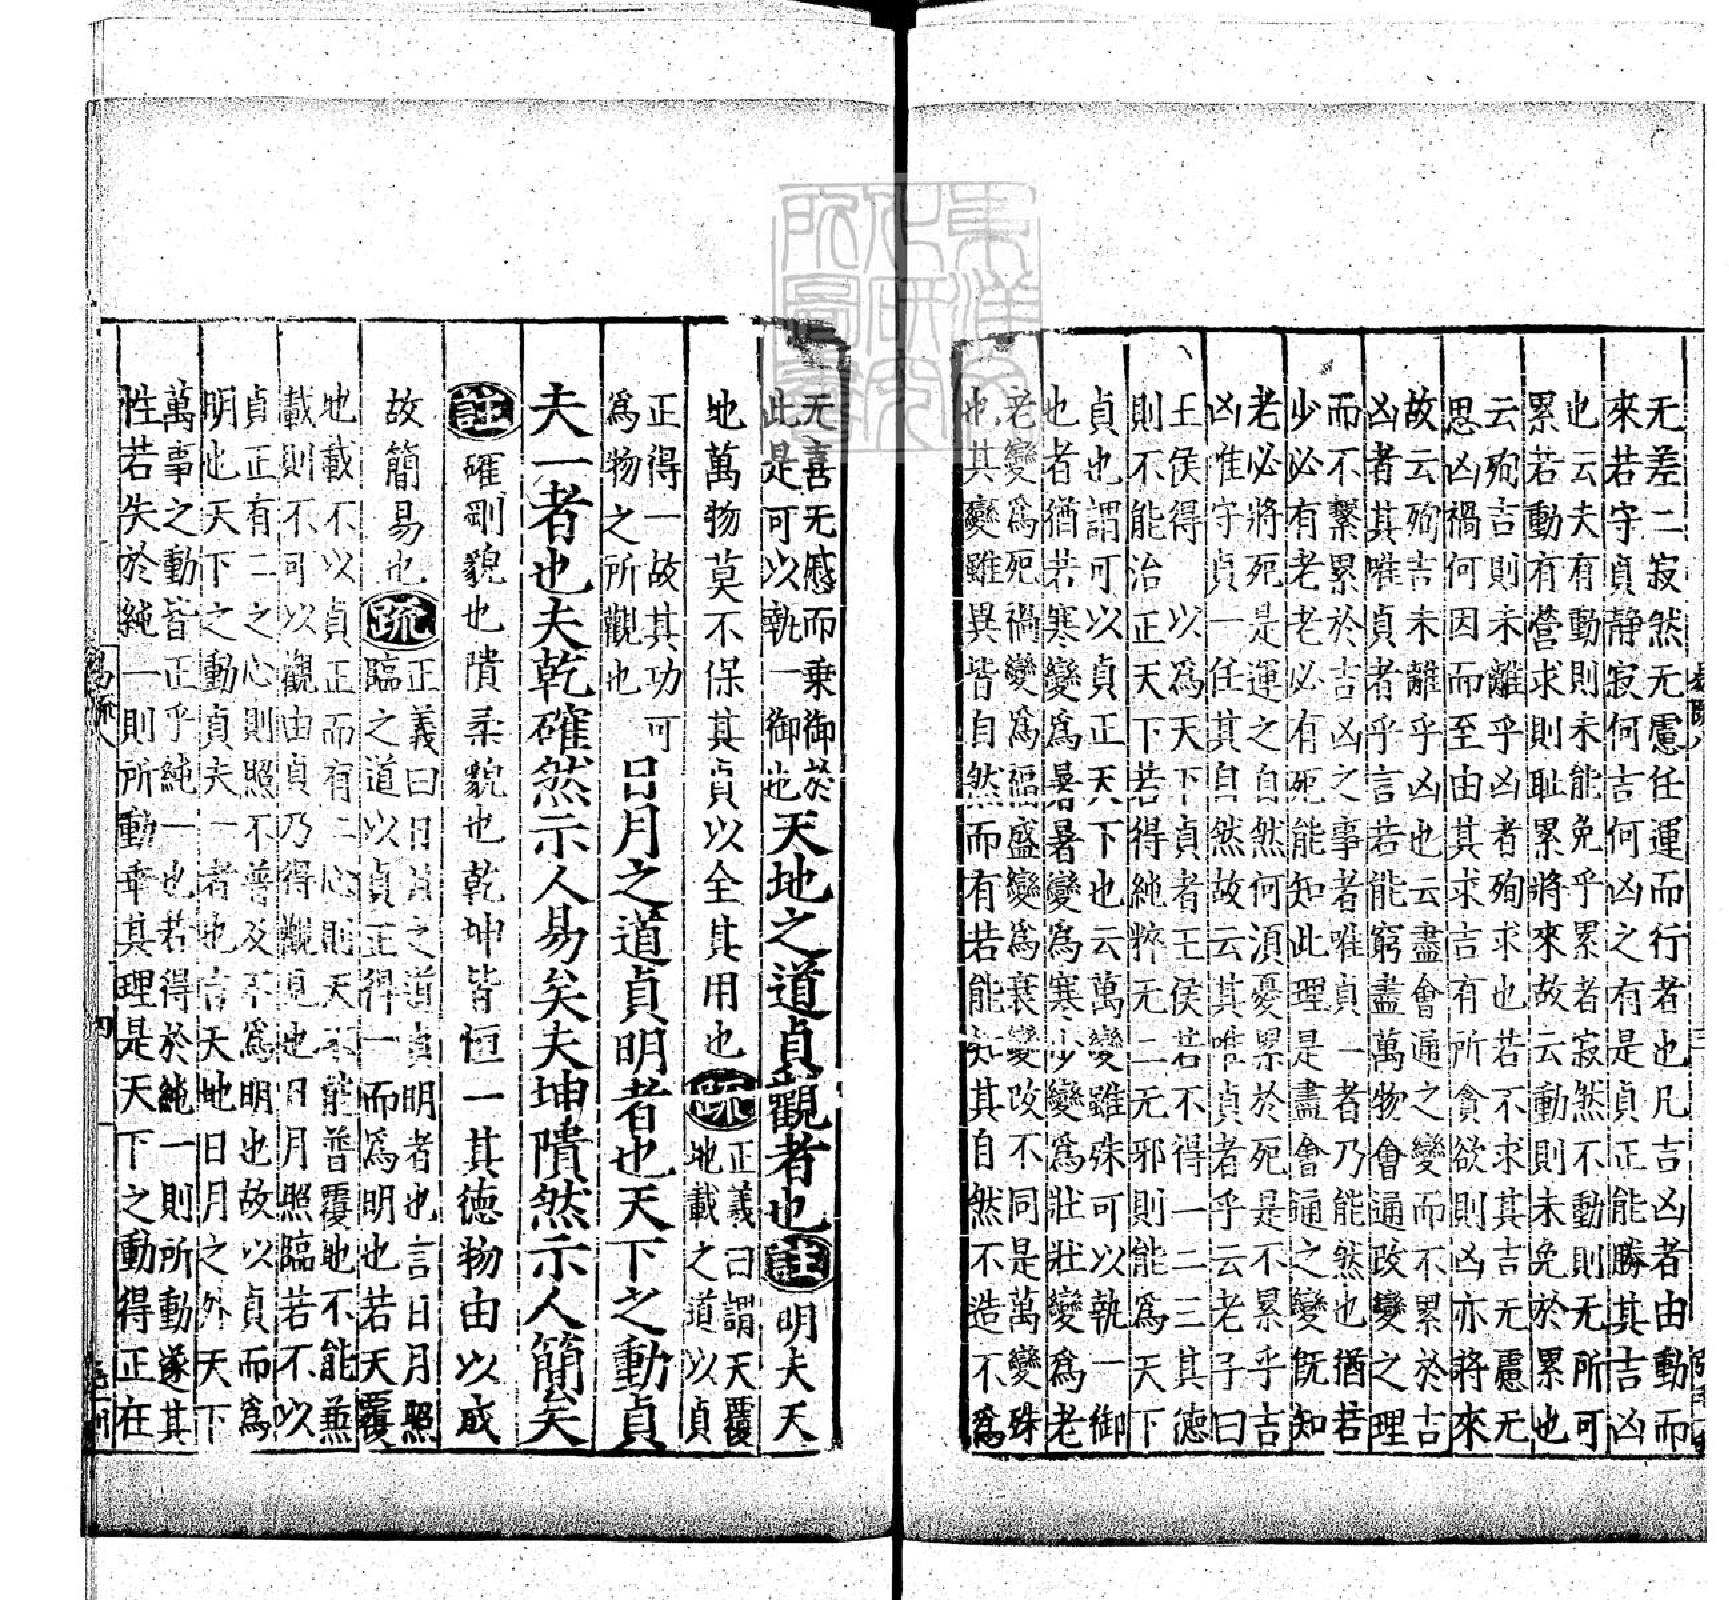 无差二寂然无慮任運而行者也凡吉凶者由動而
來若守貞靜寂何吉何凶之有是貞正能勝其吉凶
也云夫有動則未能免乎累者寂然不動則无所可
累若動有營求則耻累將來故云動則未免於累也
云殉吉則未離乎凶者殉求也若不求其吉无慮无
思凶禍何因而至由其求吉有所貪欲則凶亦將來
故云殉吉未離乎凶也云盡會通之變而不累於吉
凶者其唯貞者乎言若能窮盡萬物會通改變之理
而不繫累於吉凶之事者唯貞一者乃能然也猶若
少必有老老必有死能知此理是盡會通之變旣知
老必將死是運之自然何湏憂累於死是不累乎吉
凶唯守貞一任其自然故云其唯貞者乎云老子曰
王侯得一以爲天下貞者王侯若不得一二三其德
則不能治正天下若得純粹无二无邪則能爲天下
貞也謂可以貞正天下也云萬變雖殊可以執一御
也者猶若寒變爲暑暑變爲寒少變爲壯壯變爲老
老變爲死禍變爲福盛變爲衰變改不同是萬變殊
也其變雖異皆自然而有若能知其自然不造不爲
无喜无慼而乗御於
此是可以執一御也
天地之道貞觀者也註明夫天
地萬物莫不保其貞以全其用也疏
正義曰謂天覆
地載之道以貞
正得一故其功可
爲物之所觀也
日月之道貞明者也天下之動貞
夫一者也夫乾確然示人易矣夫坤隤然示人簡矣
註確剛貌也隤柔貌也乾坤皆恒一其德物由以成
故簡易也疏
正義曰日月之道貞明者也言日月照
臨之道以貞正得一而爲明也若天覆
地載不以貞正而有二心則天不能普覆地不能兼
載則不可以觀由貞乃得觀見也日月照臨若不以
貞正有二之心則照不普及不爲明也故以貞而爲
明也天下之動貞夫一者也言天地日月之外天下
萬事之動皆正乎純一也若得於純一則所動遂其
性若失於純一則所動乖其理是天下之動得正在